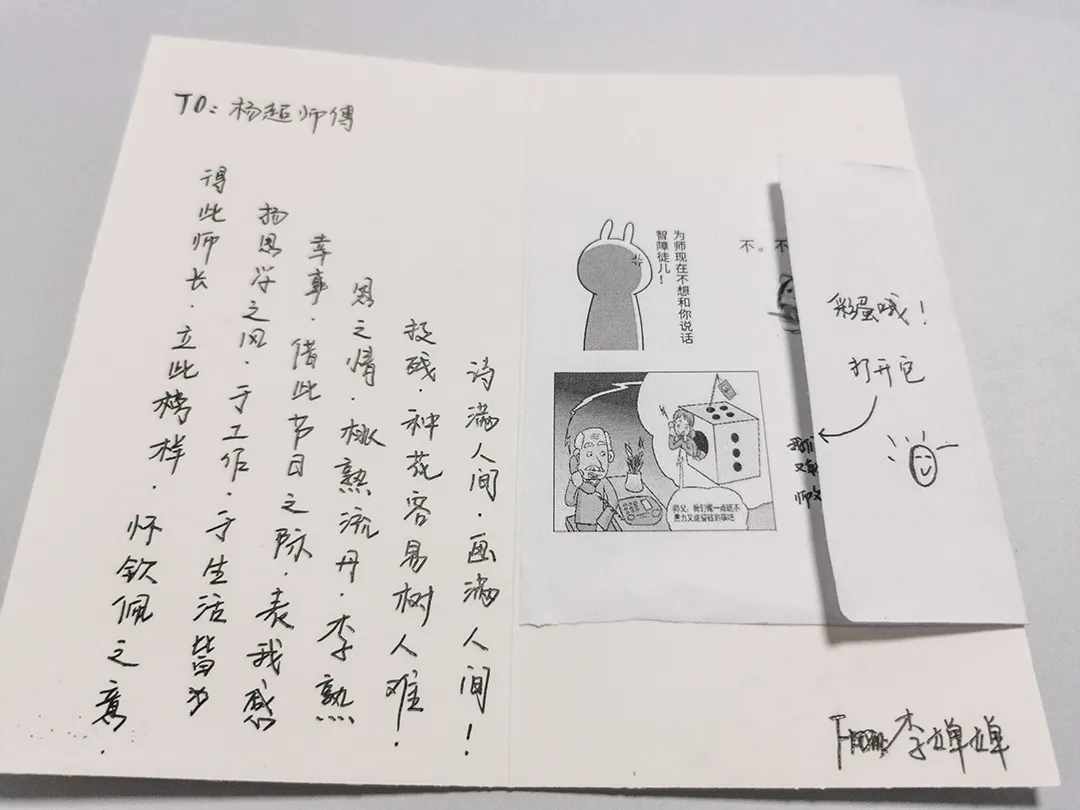 TO：杨超师傅
得此师长·立此榜样·怀钦佩之意·
扬思学之风·于工作·于生活皆为
幸事·借此节日之际·表我感
恩之情·桃熟流丹·李熟
枝残·种花容易树人难·
诗满人间·画满人间！
为师现在不想和你说话
智障徒儿！
不。不
师父，我们做一点既不
费力又能赚钱的事吧
彩蛋哦！
打开它
李婵婵